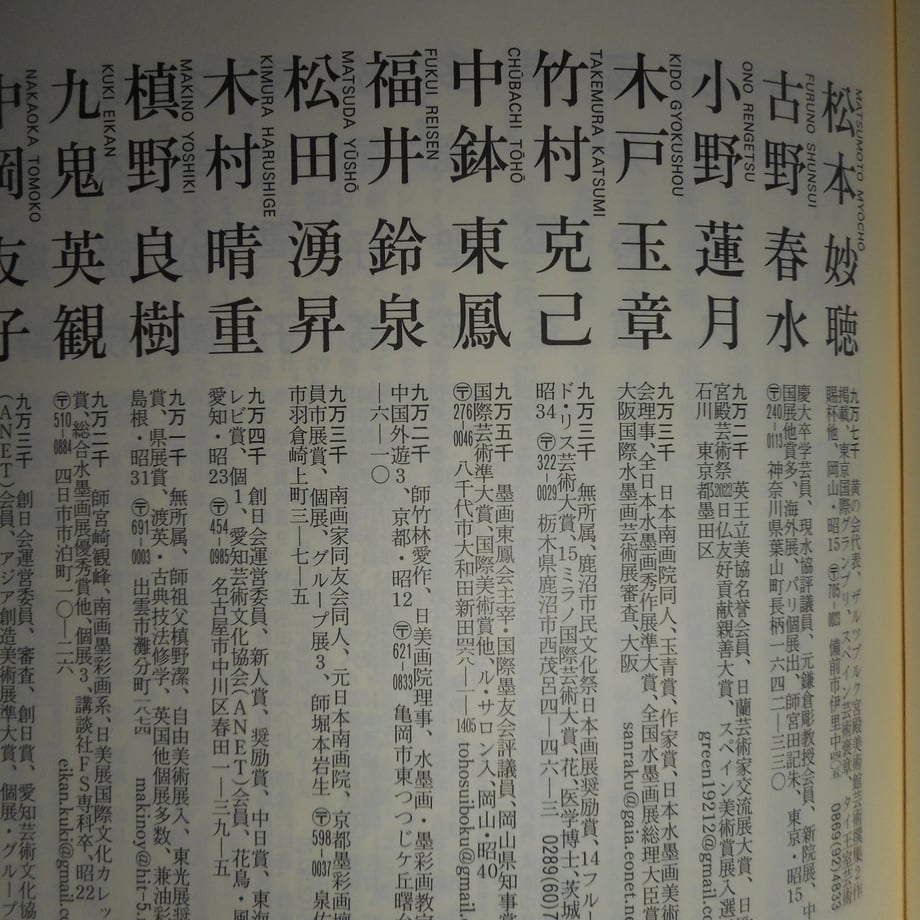 MATSUMOTO MYOCHO
松本 妙聴
九万七千 黄の会代表、ザルツブルク宮殿美術館芸術撰集2作
掲載、東京国際グランプリ、スペイン芸術褒章、タイ王室芸術
賜杯他、岡山・昭15 〒705-0023 備前市伊里中 0869(92)4833
FURUNO SHUNSUI
古野 春水
慶大卒、学芸員、現水協評議員、元鎌倉彫教授会員、新院展、中
国展他賞多、海外展、パリ個展出、師宮田記朱、東京・昭15
〒240-0113 神奈川県葉山町長柄一六四二―三三〇
ONO RENGETSU
小野 蓮月
九万二千 英王立美協名誉会員、日蘭芸術家交流展大賞、日
宮殿芸術祭2022日仏友好貢献親善大賞、スペイン美術賞展入選
石川 東京都墨田区 green19212@gmail.co
KIDO GYOKUSHOU
木戸 玉章
九万三千 日本南画院同人、玉青賞、作家賞、日本水墨画美術
会理事、全日本水墨画秀作展準大賞、全国水墨画展総理大臣賞
大阪国際水墨画芸術展審査、大阪 sanraku@gaia.eonet.ne
TAKEMURA KATSUMI
竹村 克己
九万三千 無所属、鹿沼市民文化祭日本画展奨励賞、14フルー
ド・リス芸術大賞、15ミラノ国際芸術大賞、花、医学博士、茨城
昭34 〒322-0029 栃木県鹿沼市西茂呂四―四六―三 0289(60)7
CHŪBACHI TŌHŌ
中鉢 東鳳
九万五千 墨画東鳳会主宰・国際墨友会評議員、岡山県知事賞
国際芸術準大賞、国際美術賞他、ル・サロン入、岡山・昭40
〒276-0046 八千代市大和田新田四六八―一―1405 tohosuiboku@gmail.
FUKUI REISEN
福井 鈴泉
九万二千 師竹林愛作、日美画院理事、水墨画・墨彩画教室
中国外遊3、京都・昭12 〒621-0833 亀岡市東つつじケ丘曙台
―六―一〇
MATSUDA YŪSHŌ
松田 湧昇
九万三千 南画家同友会同人、元日本南画院、京都墨彩画壇
員、市展賞、個展、グループ展3、師堀本岩生 〒598-0037 泉佐
市羽倉崎上町三―七―五
KIMURA HARUSHIGE
木村 晴重
九万四千 創日会運営委員、新人賞、奨励賞、中日賞、東海
レビ賞、個1、愛知芸術文化協会(ANET)会員、花鳥・風
愛知・昭23 〒454-0985 名古屋市中川区春田一―三九―五
MAKINO YOSHIKI
槙野 良樹
九万一千 無所属、師祖父槙野潔、自由美術展入、東光展奨
賞、県展賞、渡英・古典技法修学、英国他個展多数、兼油彩
島根・昭31 〒691-0003 出雲市灘分町一八七四 makinoy@hit-5.n
KUKI EIKAN
九鬼 英観
九万二千 師宮崎観峰、南画墨彩画系、日美展国際文化カレッ
賞、総合水墨画展優秀賞他、個展3、講談社FS専科卒、昭22
〒510-0884 四日市市泊町一〇―二六 eikan.kuki@gmail.c
NAKAOKA TOMOKO
中岡 友子
九万三千 創日会運営委員、審査、創日賞、愛知芸術文化協
(ANET)会員、アジア創造美術展準大賞、個展・グループ